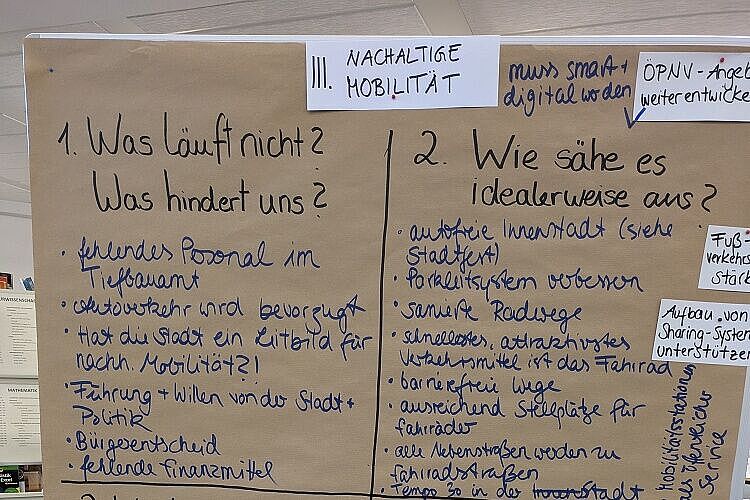 III. NACHALTIGE
MOBILITÄT
muss smart +
digital werden
ÖPNV-Angeb
weiterentwicke
1. Was läuft nicht?
Was hindert uns?
• fehlendes Personal im
Tiefbauamt
• Autoverkehr wird bevorzugt
• Hat die Stadt ein Leitbild für
nachh. Mobilität?!
• Führung + Willen von der Stadt +
Politik
• Bürgerentscheid
• fehlende Finanzmittel
2. Wie sähe es
idealerweise aus?
• autofreie Innenstadt (siehe
Stadtfest)
• Parkleitsystem verbessern
• sanierte Radwege
• schnellstes, attraktivstes
Verkehrsmittel ist das Fahrrad
• barrierefreie Wege
• ausreichend Stellplätze für
Fahrräder
• alle Nebenstraßen werden zu
Fahrradstraßen
• Tempo 30 in der Stadt
Fuß-
verkehr
stärk
Aufbau von
Sharing-System
unterstützen
Mobilitätsstationen
als öffentlicher
Service
MATHEMATIK